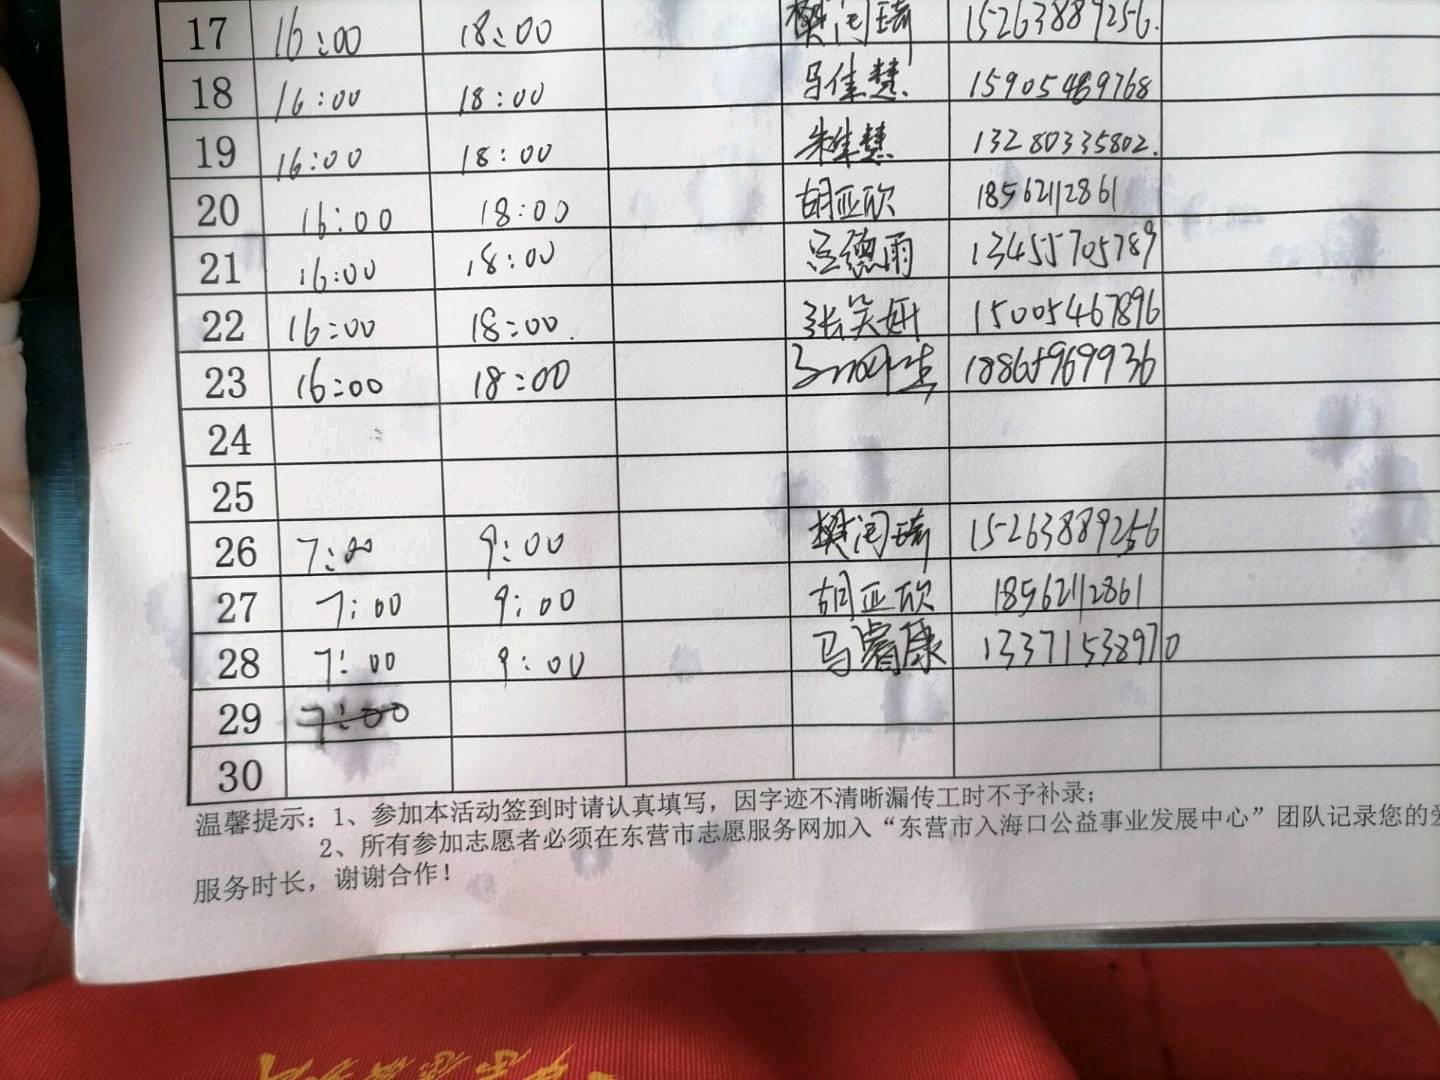 17 16:00 18:00 樊闰琦 15263889256.
18 16:00 18:00 马佳慧 15905489768
19 16:00 18:00 朱佳慧 13280335802.
20 16:00 18:00 胡亚欣 18562112861
21 16:00 18:00 德雨 13455705789
22 16:00 18:00. 张笑妍 15005467896
23 16:00 18:00 18865969936
24
25
26 7:00 9:00 樊闰琦 15263889256
27 7:00 9:00 胡亚欣 18562112861
28 7:00 9:00 马睿康 13371538970
29 7:00
30
温馨提示：1、参加本活动签到时请认真填写，因字迹不清晰漏传工时不予补录；
2、所有参加志愿者必须在东营市志愿服务网加入“东营市入海口公益事业发展中心”团队记录您的爱
服务时长，谢谢合作！